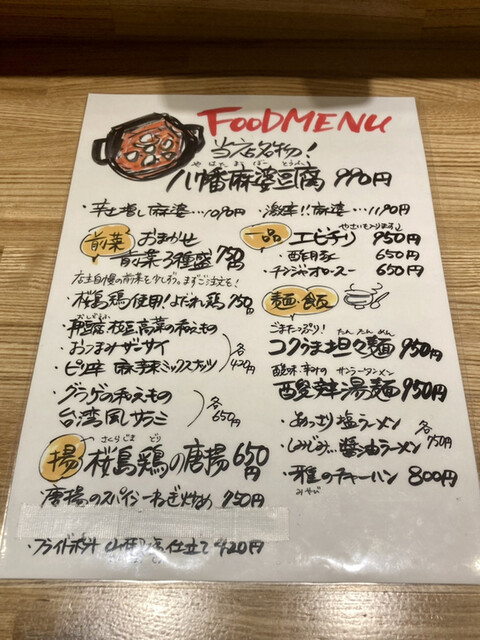 FOOD MENU
当店名物!
やはたまーぼーとうふ
八幡麻婆豆腐 990円
・辛さ増し麻婆…1090円
・激辛!!麻婆…1190円
前菜
おまかせ
前菜3種盛 750円
店主自慢の前菜を少しずつ。まずご注文を!
・桜島鶏使用!よだれ鶏 750円
高菜の和えもの
・おつまみザーサイ
・ピリ辛 麻辣ミックスナッツ
各420円
・クラゲの和えもの
台湾風サラミ
各650円
揚
さくらじまどり
桜島鶏の唐揚 650円
・唐揚のスパイシーねぎ炒め 750円
・フライドポテト 山椒塩仕立て 420円
一品
やさいも入ります♪
エビチリ 950円
・酢豚 650円
・チンジャオロースー 650円
麺・飯
ごまたっぷり!
たんたんめん
コクうま担々麺 950円
酸味・辛みの サンラータンメン
酸辣湯麺 950円
・あっさり塩ラーメン
・しみじみ…醤油ラーメン
各750円
・雅のチャーハン 800円
みやび